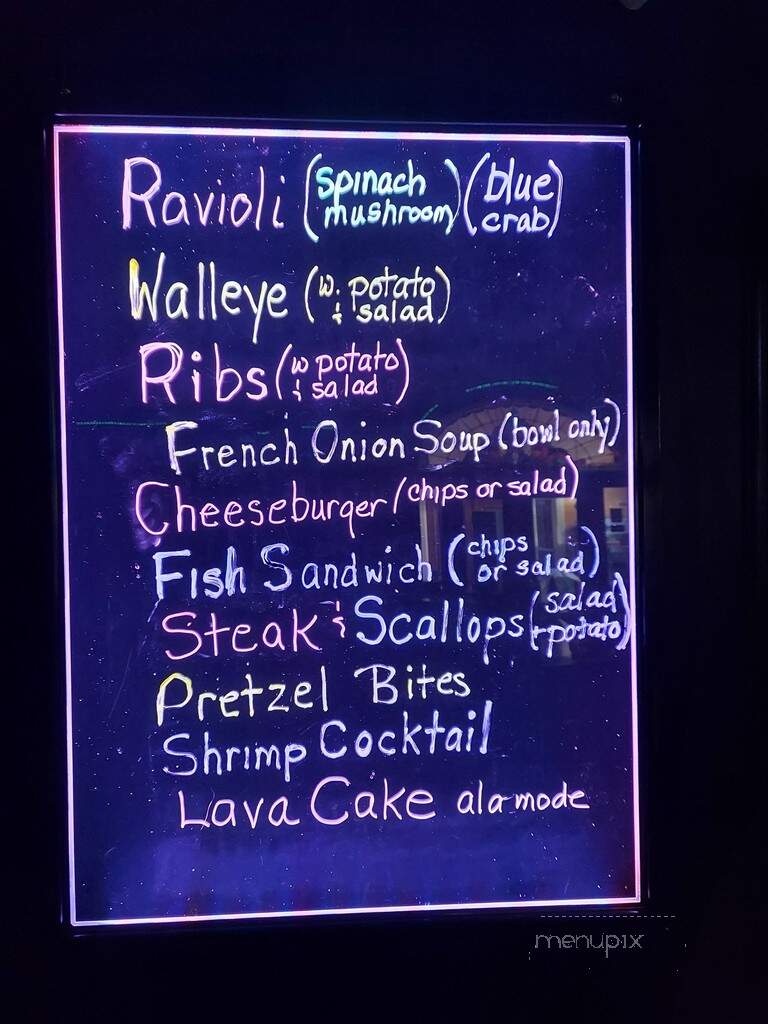 Ravioli (spinach mushroom) (blue crab)
Walleye (w. potato & salad)
Ribs (w potato & salad)
French Onion Soup (bowl only)
Cheeseburger (chips or salad)
Fish Sandwich (chips or salad)
Steak & Scallops (salad + potato)
Pretzel Bites
Shrimp Cocktail
Lava Cake ala mode
menupix